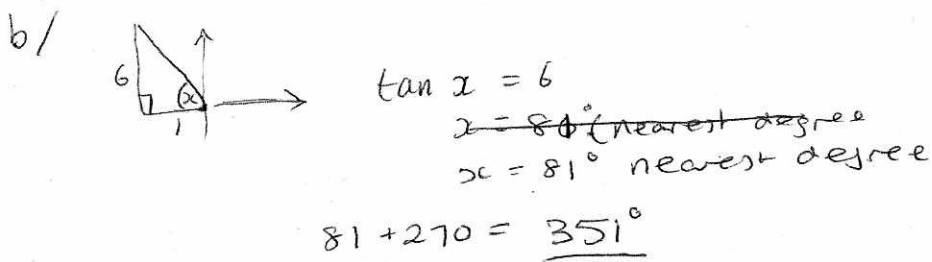 b/
6
x
1
tan x = 6
x = 81° (nearest degree
x = 81° nearest degree
81 + 270 = 351°